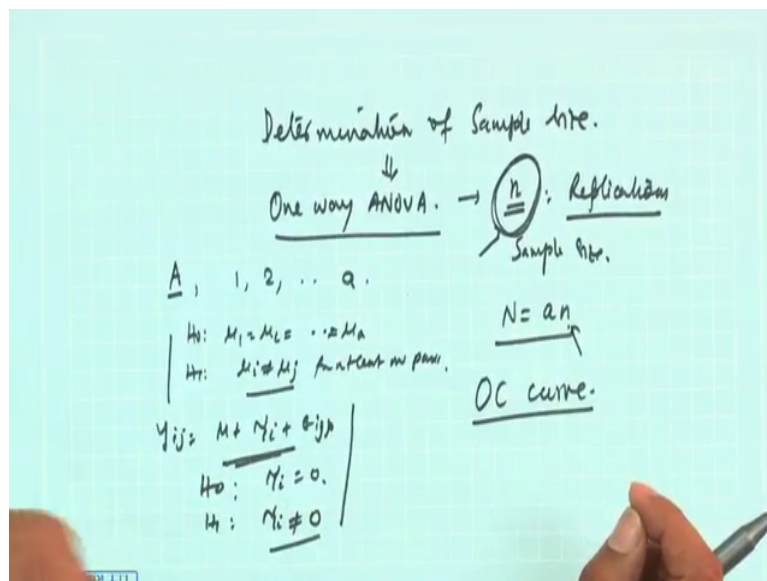 Determination of Sample size.
⇓
One way ANOVA. → n : Replications
Sample size.
A, 1, 2, .. a.
N = an
H0: μ1 = μ2 = .. = μa
H1: μi ≠ μj for atleast one pair.
OC curve.
yij = μ + τi + εij
H0: τi = 0.
H1: τi ≠ 0